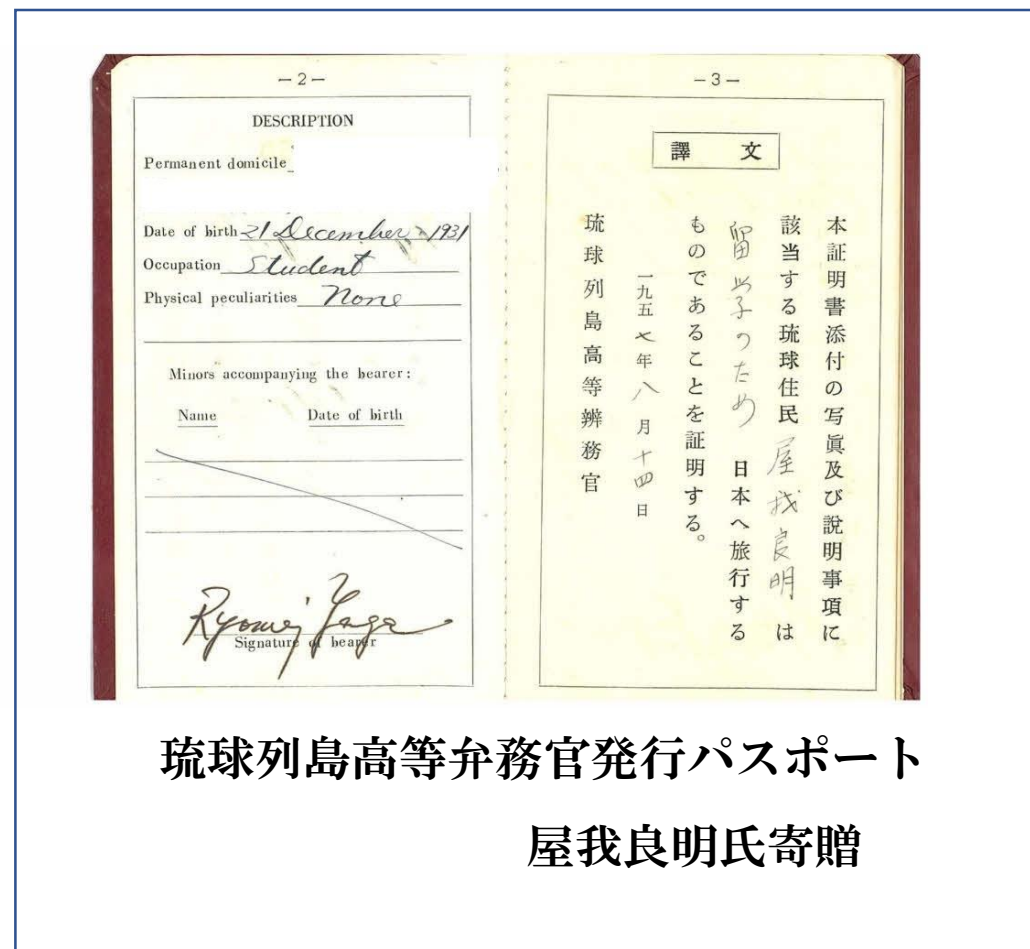 －2－
DESCRIPTION
Permanent domicile
Date of birth 21 December 1931
Occupation Student
Physical peculiarities None
Minors accompanying the bearer:
Name Date of birth
Ryomei Yaga
Signature of bearer
－3－
譯 文
本証明書添付の写眞及び説明事項に
該当する琉球住民 屋我良明 は
留学のため 日本へ旅行する
ものであることを証明する。
一九五七年八月十四日
琉球列島高等辨務官
琉球列島高等弁務官発行パスポート
屋我良明氏寄贈